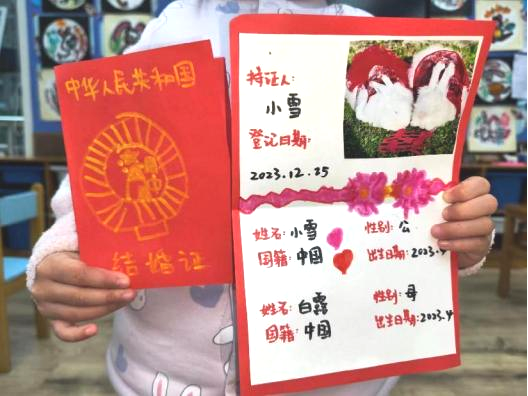 中华人民共和国
结婚证
持证人:
小雪
登记日期:
2023.12.25
姓名:小雪 性别:公
国籍:中国 出生日期:2023.4
姓名:白露 性别:母
国籍:中国 出生日期:2023.4